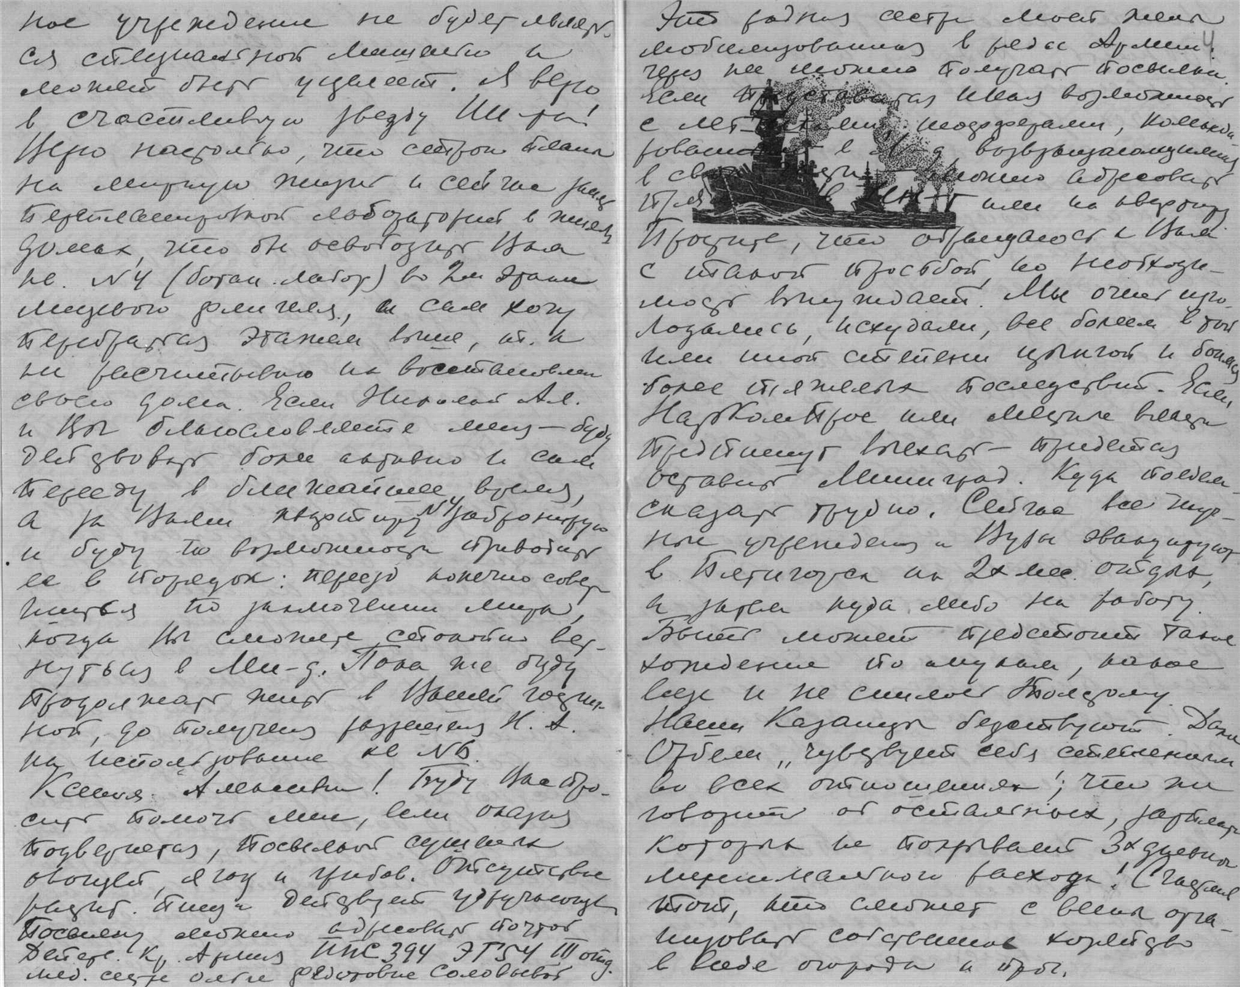 ное учреждение не будет являть-
ся специальной мишенью и
может быть уцелеет. Я верю
в счастливую звезду
Верю настолько, что строю планы
на мирную жизнь и сейчас
перепланировкой лабораторий в жилых
домах, что бы освободить Вам
кв. N4 (ботан. лабор) во 2м этаже
лицевого флигеля, а сам хочу
перебраться этажем выше, т. к.
не расчитываю на восстановлен
своего дома. Если Николай Ал.
и Вы благословляете меня — буду
действовать более активно и сам
перееду в ближайшее время,
а за Вами квартиру N4 забронирую
и буду по возможности приводить
ее в порядок: переезд конечно совер
шиться по заключении мира,
когда Вы сможете спокойно вер-
нуться в Ленинград. Пока же буду
продолжать жить в Вашей
до получения разрешения Н. А.
на использование кв N6.
Ксения ! Буду Вас про-
сить помочь мне, если оказия
подвернется, посылкой сушеных
овощей, ягод и грибов. Отсутствие
пищи действует удручающе
Посылку можно адресовать почтой
Кр. Армия ППС 394 ЭГ 54 III отд.
мед. сестре Ольге Федоровне Соловьевой
4
Это родная сестра моей жены
мобилизованная в ряды Армии.
через нее можно получать посылки.
Если представится иная возможность
с
в возвращающимися
в можно адресовать
или на квартиру
Простите, что обращаюсь к Вам
с такой просьбой, но необходи-
мость вынуждает. Мы очень изго-
лодались, исхудали, все болеем в той
или иной степени цынгой и боимся
более тяжелых последствий. Если
НарКомПрос или
предпишут выехать — придется
оставить Ленинград. Куда поедем —
сказать трудно. Сейчас все науч-
ные учреждения и Вузы эвакуируют
в Пятигорск на 2х мес. отдых,
а затем куда либо на работу.
Быть может предстоит такое
хождение по мукам, какое
еще и не снилось Толстому.
Наши Казанцы бедствуют. Даже
Орбели "чувствует себя стесненным
во всех отношениях"; что же
говорить об остальных, зарплата
которых не покрывает 3х дневного
минимального расхода! Счастлив
тот, кто сможет с весны орга-
низовать собственное хозяйство
в виде огорода и проч.